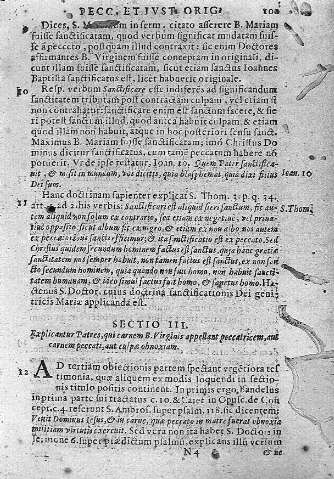 PECC. ET IVST. ORIG. 102
Dices, S. in serm. citato asserere B. Mariam
fuisse sanctificatam, quod verbum significat mundatam fuis-
se a peccato, postquam illud contraxit: sic enim Doctores
affirmantes B. Virginem fuisse conceptam in originali, di-
cunt illam fuisse sanctificatam, sicut etiam sanctus Ioannes
Baptista sanctificatus est, licet habuerit originale.
10 Resp. verbum Sanctificare esse indifferés ad significandum
sanctitatem tributam post contractam culpam, vel etiam si
non contrahatur: sanctificare enim est sanctum facere, & fie
ri potest sanctum illud, quod nunca habuit culpam, & etiam
quod illam non habuit, atque in hoc posteriori sensu sanct.
Maximus B. Mariam fuisse sanctificatam, imò Christus Do
minus dicitur sanctificatus, cum tamè peccatum habere nõ
potuerit. Vt de ipse testatur. Ioan. 10. Quem Pater sanctifica-
uit, & misit in mundum, vos dicitis, quia blasphemat, quia dixi filius
Dei sum.
Ioan. 10
11 Hanc doctrinam sapienter explicat S. Thom. 3. p. q. 34.
art. 1. ad 2. his verbis: Sanctificari est aliquid fieri sanctum, fit au-
tem aliquid non solum ex contrario, sed etiam ex negatiuè, vel priua-
tiuè opposito sicut album fit ex nigro, & etiam ex non albo nos autem
ex peccatoribus sancti efficimur, & ita sanctificatio est ex peccato. Sed
Christus quidem secundum hominem factus est sanctus, quia hanc gratiæ
sanctitatem non semper habuit, non tamen factus est sanctus, ex non san
cto secundum hominem, quia quando non fuit homo, non habuit sancti-
tatem humanam, & ideo simul factus fuit homo, & sanctus homo. Ha-
ctenus S. Doctor, cuius doctrina sanctificationis Dei geni-
tricis Mariæ applicanda est.
S. Thom.
SECTIO III.
Explicantur Patres, qui carnem B. Virginis appellant peccatricem, aut
carnem peccati, aut culpæ obnoxiam.
12 AD tertiam obiectionis partem spectant vrgētiora tes
timonia, quæ aliquem ex modis loquendi in sectio-
nis titulo positis continent. In primis ergo, Bandelus
in prima parte sui tractatus c. 10. & Caiet. in Opusc. de Con
cept. c. 4. referunt S. Ambros. super psalm. 118. sic dicentem:
Venit Dominus Iesus, & in carne, quæ peccato in matre fuerat obnoxia
militiam virtutis exercuit. Sed vera non ita habet S. Doctor in
se, mone 6. super prædictum psalmũ, explicans illũ versum
N 4 & ne